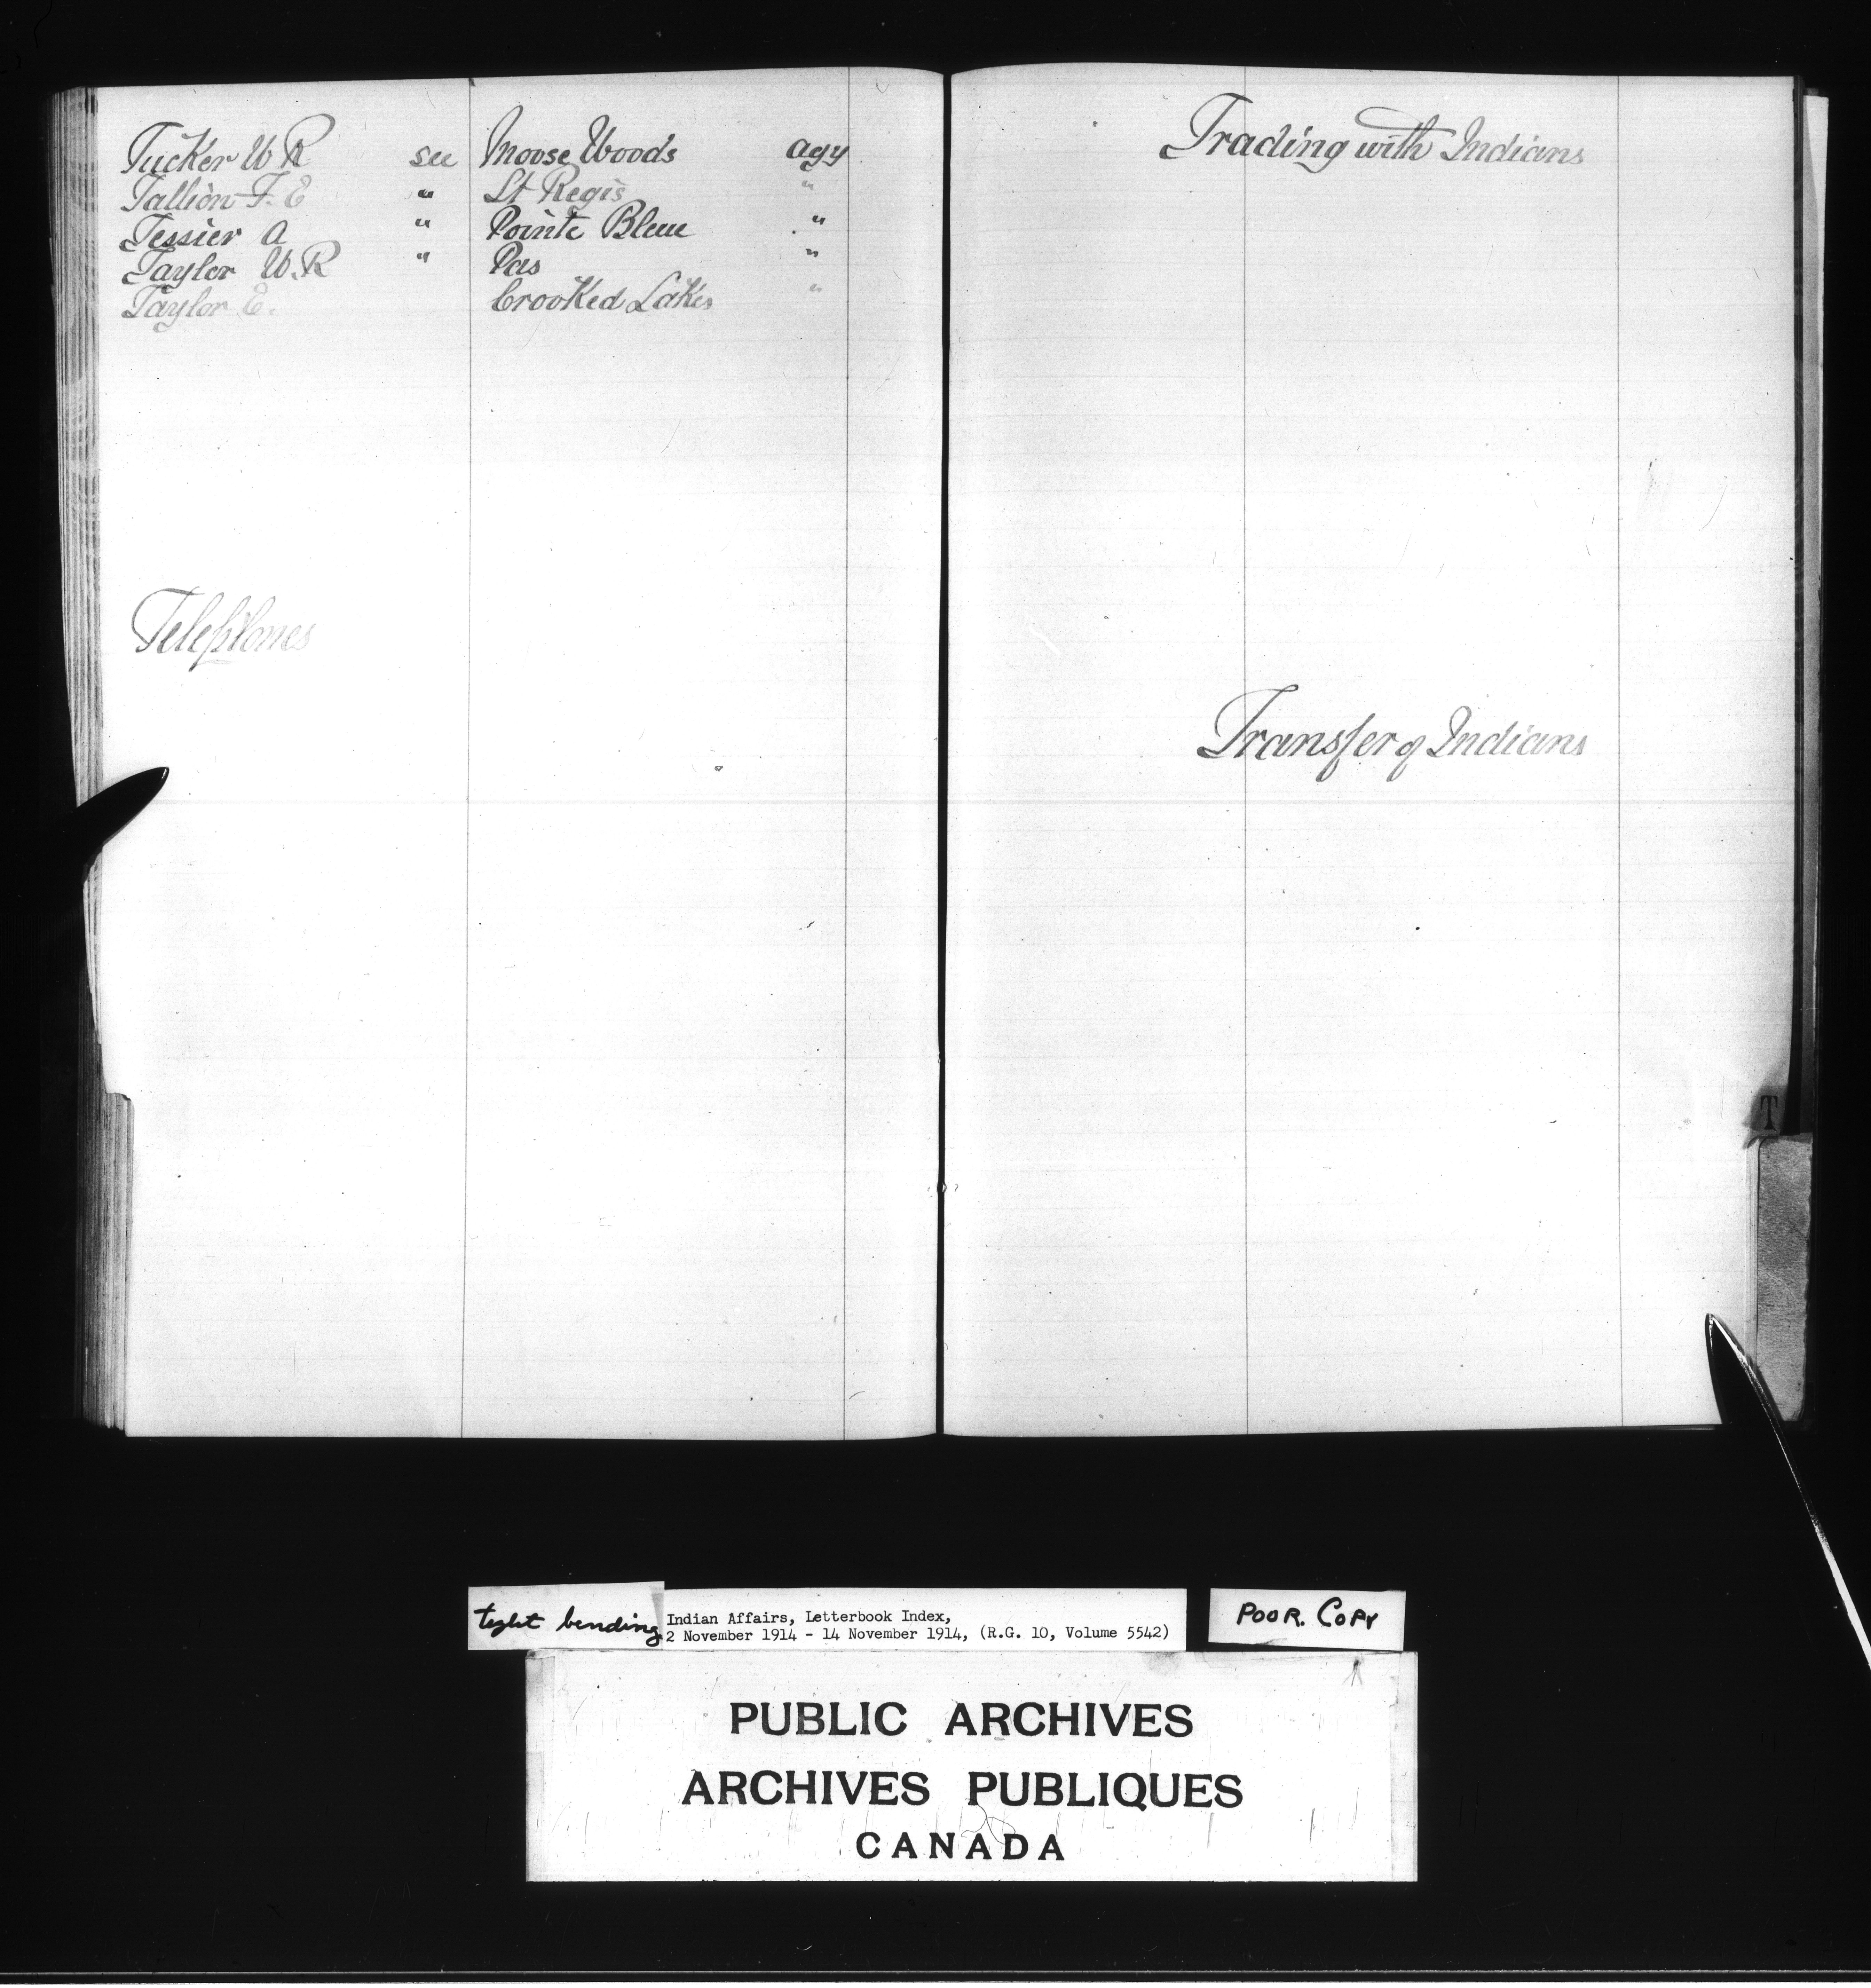 Tucker W R see Moose Woods agy
Tallion F. E " St Regis "
Tessier A " Pointe Bleue "
Taylor W. R " Pas "
Taylor E. Crooked Lakes "
Telephones
Trading with Indians
Transfer of Indians
T
tight bending
Indian Affairs, Letterbook Index,
2 November 1914 - 14 November 1914, (R.G. 10, Volume 5542)
POOR. COPY
PUBLIC ARCHIVES
ARCHIVES PUBLIQUES
CANADA